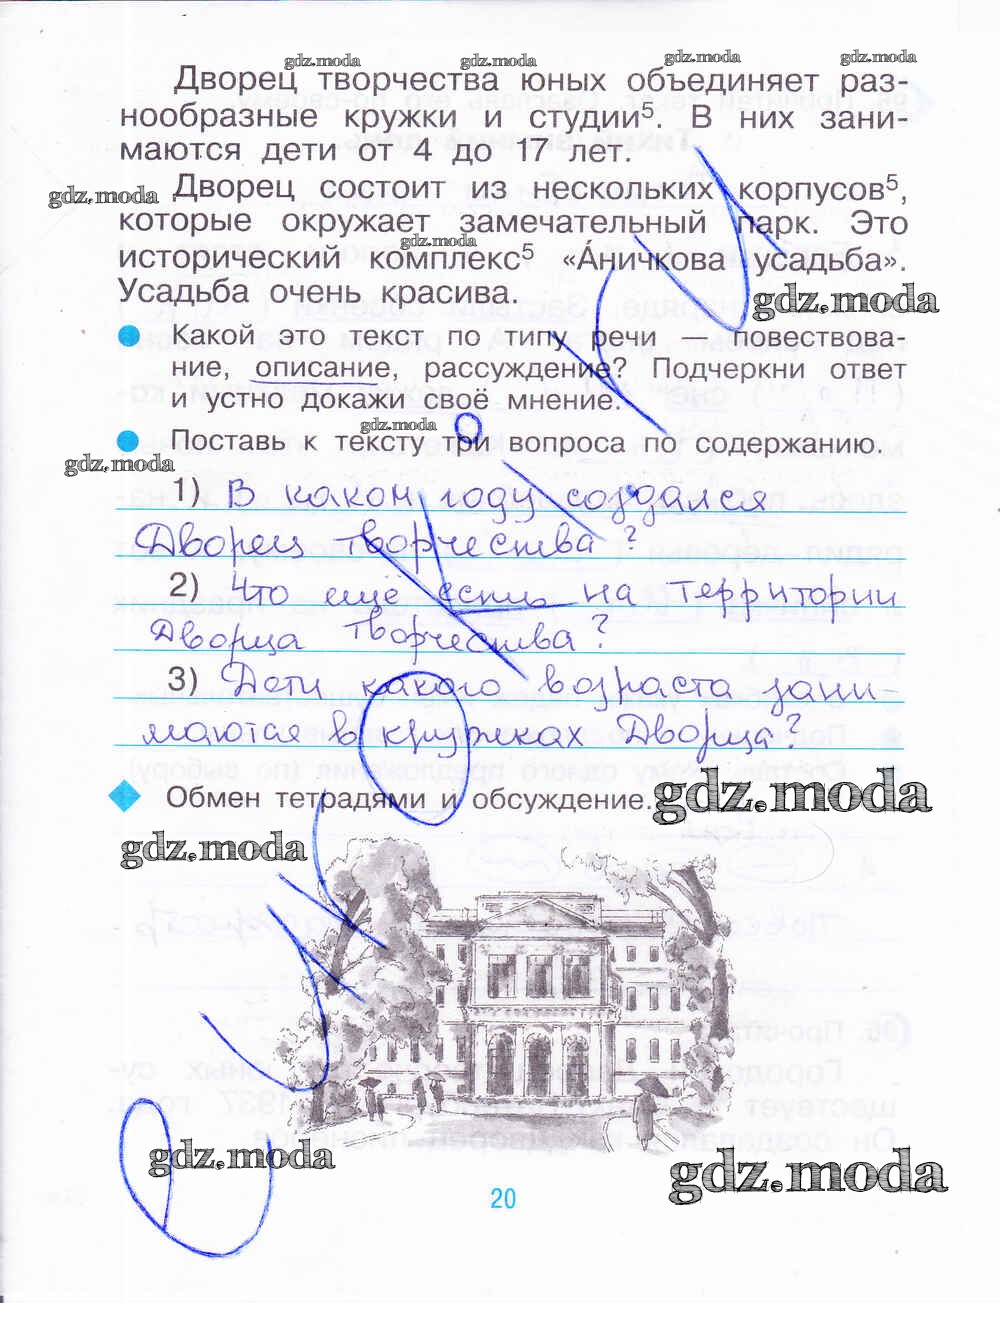 gdz.moda gdz.moda gdz.moda gdz.moda
Дворец творчества юных объединяет раз-
нообразные кружки и студии⁵. В них зани-
маются дети от 4 до 17 лет.
gdz.moda
Дворец состоит из нескольких корпусов⁵,
которые окружает замечательный парк. Это
gdz.moda
исторический комплекс⁵ «А́ничкова усадьба».
Усадьба очень красива.
gdz.moda
Какой это текст по типу речи — повествова-
ние, описание, рассуждение? Подчеркни ответ
и устно докажи своё мнение.
gdz.moda
Поставь к тексту три вопроса по содержанию.
gdz.moda
1) В каком году создался
Дворец творчества?
2) Что ещё есть на территории
Дворца творчества?
3) Дети какого возраста зани-
маются в кружках Дворца?
Обмен тетрадями и обсуждение.
gdz.moda
gdz.moda
gdz.moda
gdz.moda
20